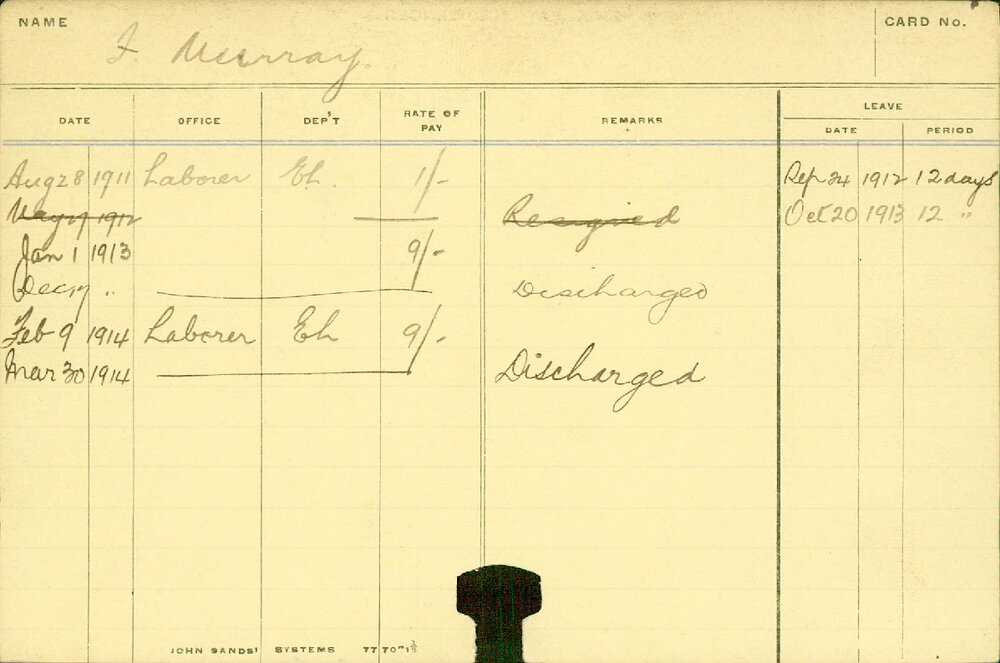 NAME
CARD No.
F. Murray.
DATE OFFICE DEP'T RATE OF PAY REMARKS LEAVE
DATE PERIOD
Aug 28 1911 Laborer Eh. 1/- Sep 24 1912 12 days
May 27 1912 Resigned Oct 20 1913 12 "
Jan 1 1913 9/-
Dec 17 " Discharged
Feb 9 1914 Laborer Eh 9/-
Mar 30 1914 Discharged
JOHN SANDS' SYSTEMS 7770"1½